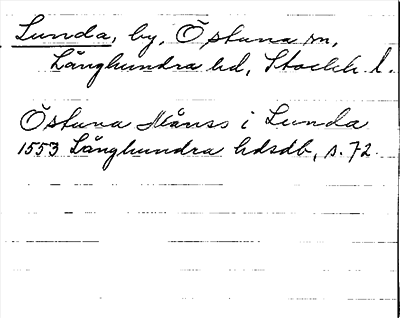 Lunda, by, Östuna sn,
Långhundra hd, Stockh. l.
Östuna Månss i Lunda
1553 Långhundra hdsdb, s. 72.